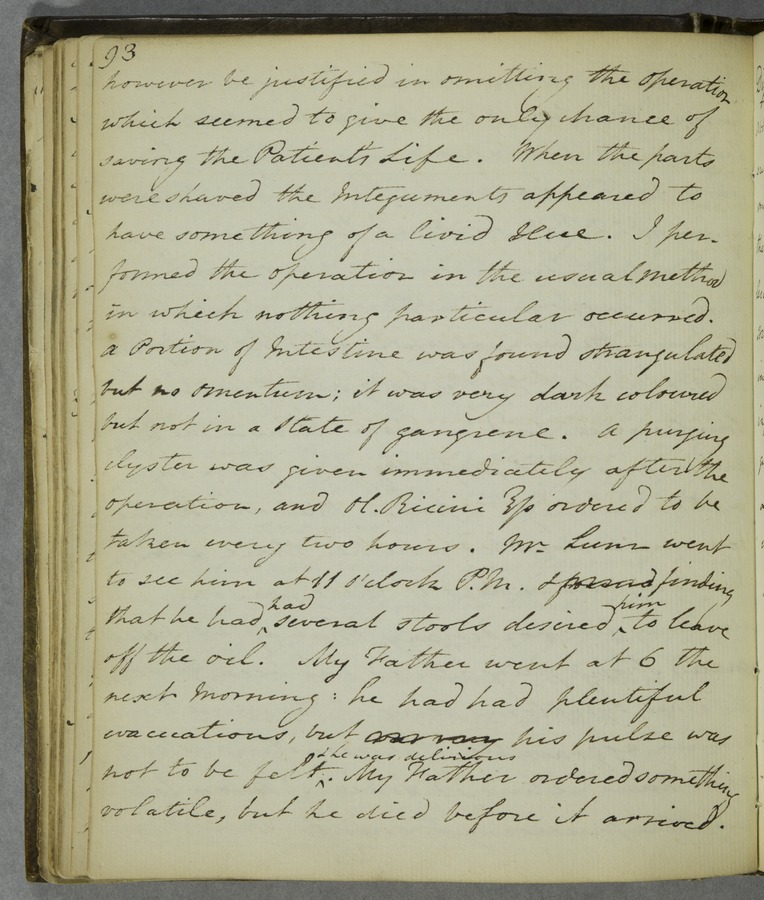 93
however be justified in omitting the operation
which seemed to give the only chance of
saving the Patients Life. When the parts
were shaved the Integuments appeared to
have something of a livid Hue. I per-
formed the operation in the usual method
in which nothing particular occurred.
a Portion of Intestine was found strangulated
but no omentum; it was very dark coloured
but not in a State of gangrene. A purging
clyster was given immediately after the
operation, and Ol. Ricini ordered to be
taken every two hours. Mr. Lunn went
to see him at 11 o'clock P.M. & found finding
that he had had several stools desired him to leave
off the oil. My Father went at 6 the
next Morning: he had had plentiful
evacuations, but his pulse was
not to be felt & he was delirious. My Father ordered something
volatile, but he died before it arrived.